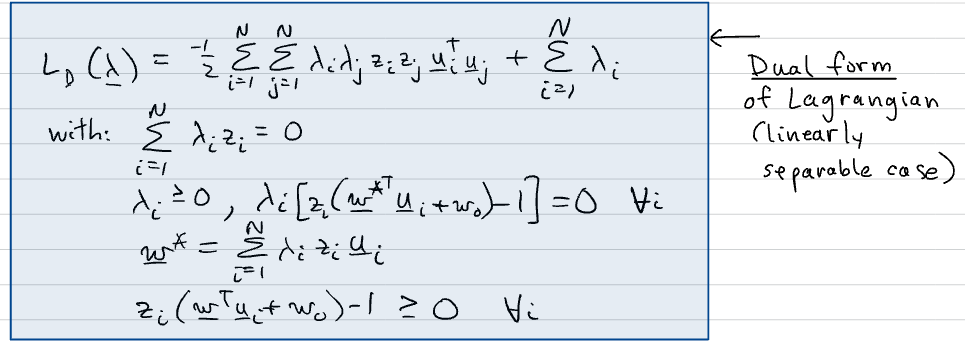 L_D(λ) = -1/2 Σ_{i=1}^{N} Σ_{j=1}^{N} λ_i λ_j z_i z_j u_i^T u_j + Σ_{i=1}^{N} λ_i
with: Σ_{i=1}^{N} λ_i z_i = 0
λ_i ≥ 0, λ_i [z_i(w*^T u_i + w_0) - 1] = 0 ∀i
w* = Σ_{i=1}^{N} λ_i z_i u_i
z_i (w^T u_i + w_0) - 1 ≥ 0 ∀i
← Dual form
of Lagrangian
(linearly
separable case)